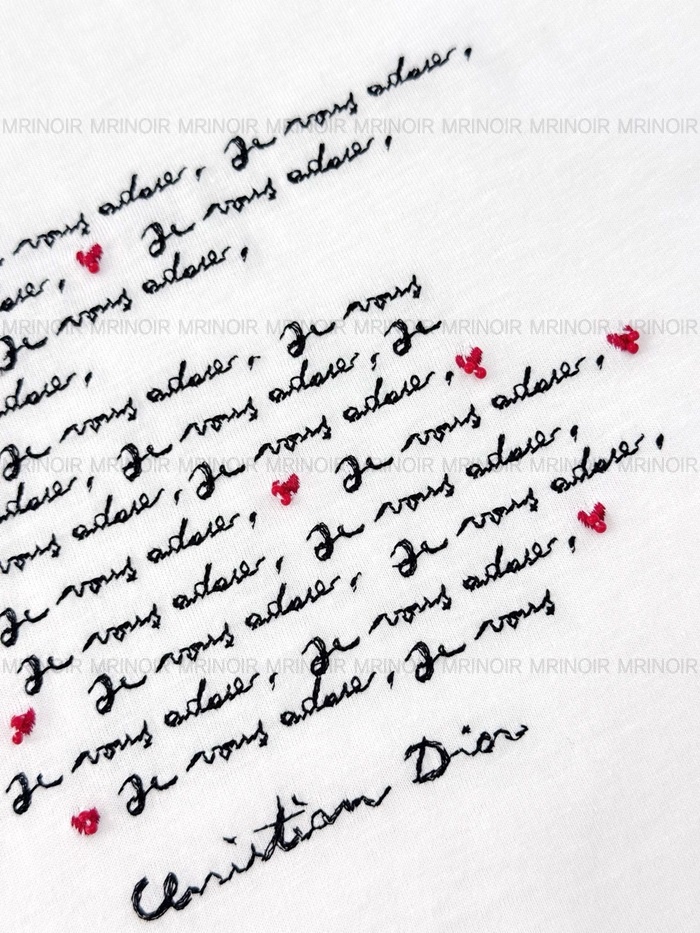 MRINOIR MRINOIR MRINOIR MRINOIR MRINOIR MRINOIR MRINOIR MRINOIR
, vous adore, Je vous adore,
Je vous adore,
Je vous adore,
MRINOIR MRINOIR MRINOIR MRINOIR MRINOIR MRINOIR MRINOIR MRINOIR
adore,
Je vous adore, Je vous
adore, Je vous adore, Je
vous adore, Je vous adore,
MRINOIR MRINOIR MRINOIR MRINOIR MRINOIR MRINOIR MRINOIR MRINOIR
Je vous adore, Je vous adore,
Je vous adore, Je vous adore,
Je vous adore, Je vous adore,
MRINOIR MRINOIR MRINOIR MRINOIR MRINOIR MRINOIR MRINOIR MRINOIR
Je vous adore, Je vous adore,
Je vous adore, Je vous
Christian Dior